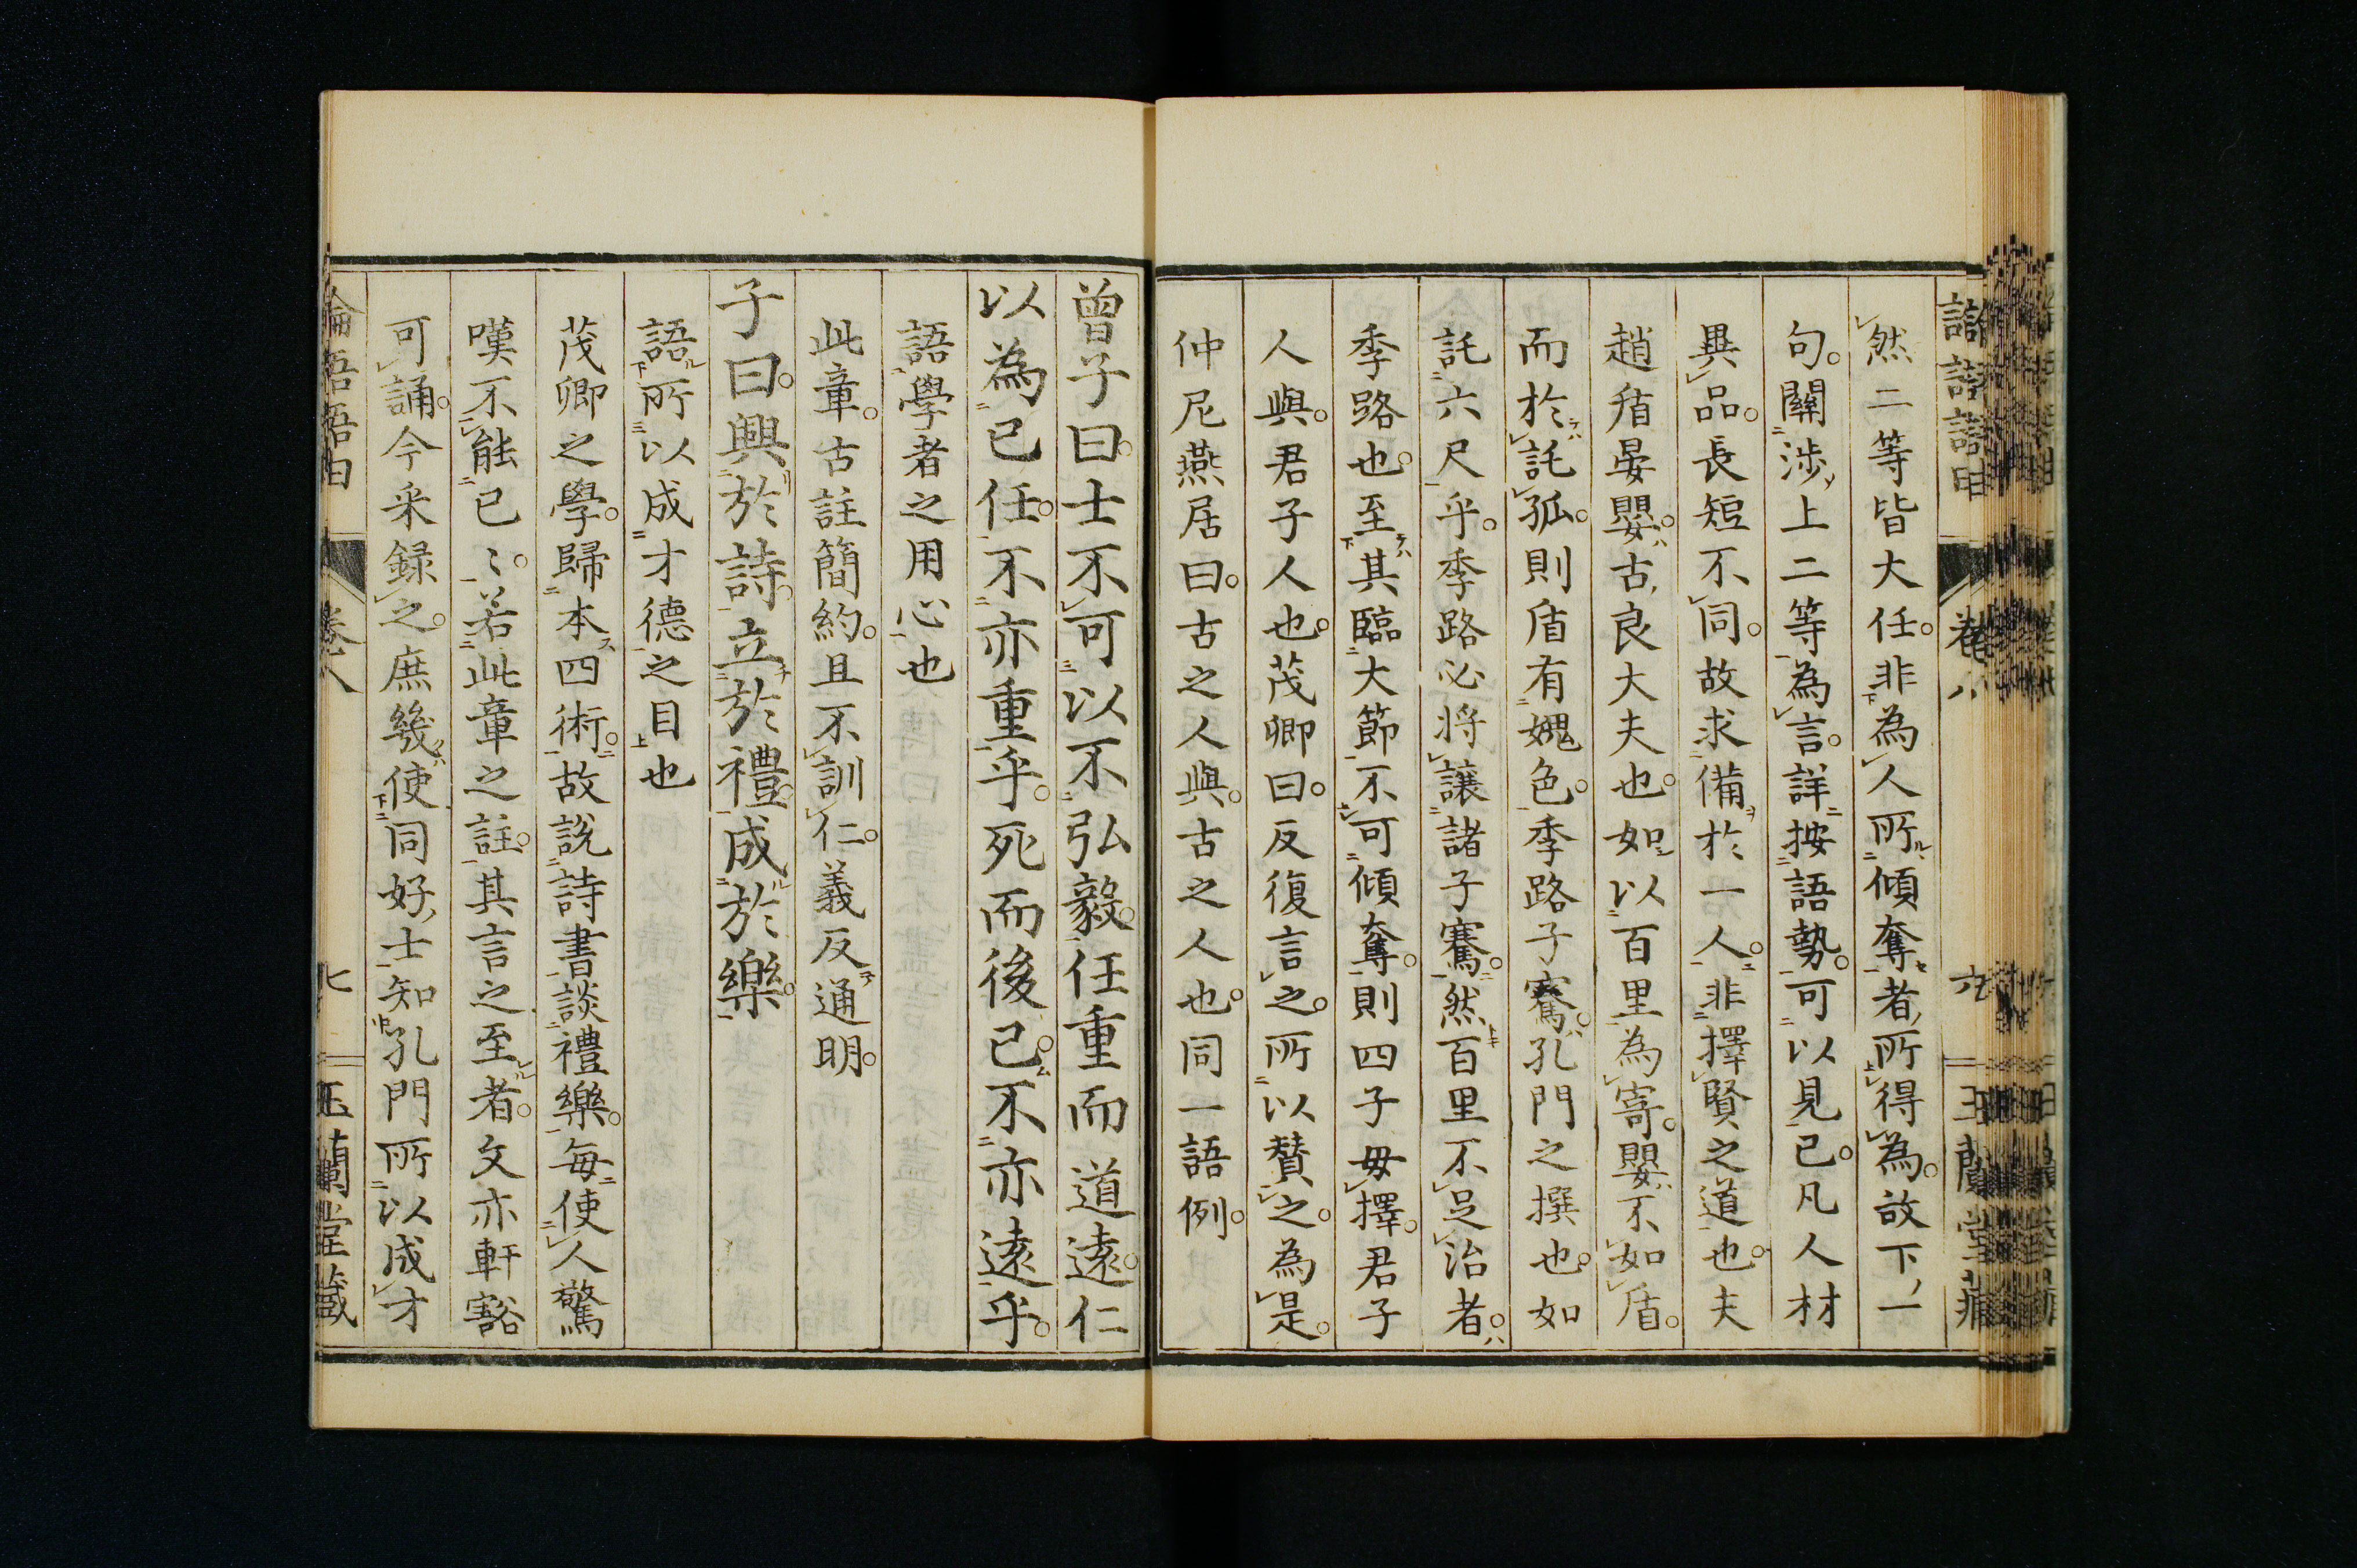 然二等皆大任。非為人所傾奪者、所得為。故下一
句。關渉上二等為言。詳按語勢。可以見已。凡人材
異品。長短不同。故求備於一人。非擇賢之道也。夫
趙盾晏嬰。古良大夫也。如以百里為寄。嬰不如盾。
而於託孤。則盾有媿色。季路子騫。孔門之撰也。如
託六尺乎。季路必將讓諸子騫。然百里不足治者。
季路也。至其臨大節不可傾奪。則四子毋擇。君子
人與。君子人也。茂卿曰。反復言之。所以賛之。為是。
仲尼燕居曰。古之人與。古之人也。同一語例。
曾子曰。士不可以不弘毅。任重而道遠。仁
以為己任。不亦重乎。死而後已。不亦遠乎。
語學者之用心也
此章。古註簡約。且不訓仁。義反通明。
子曰。興於詩。立於禮。成於樂。
語所以成才德之目也
茂卿之學。歸本四術。故説詩書談禮樂。毎使人驚
嘆不能已〻。若此章之註。其言之至者。文亦軒豁
可誦。今采録之。庶幾使同好士知孔門所以成才
卷八
七
玉蘭堂藏